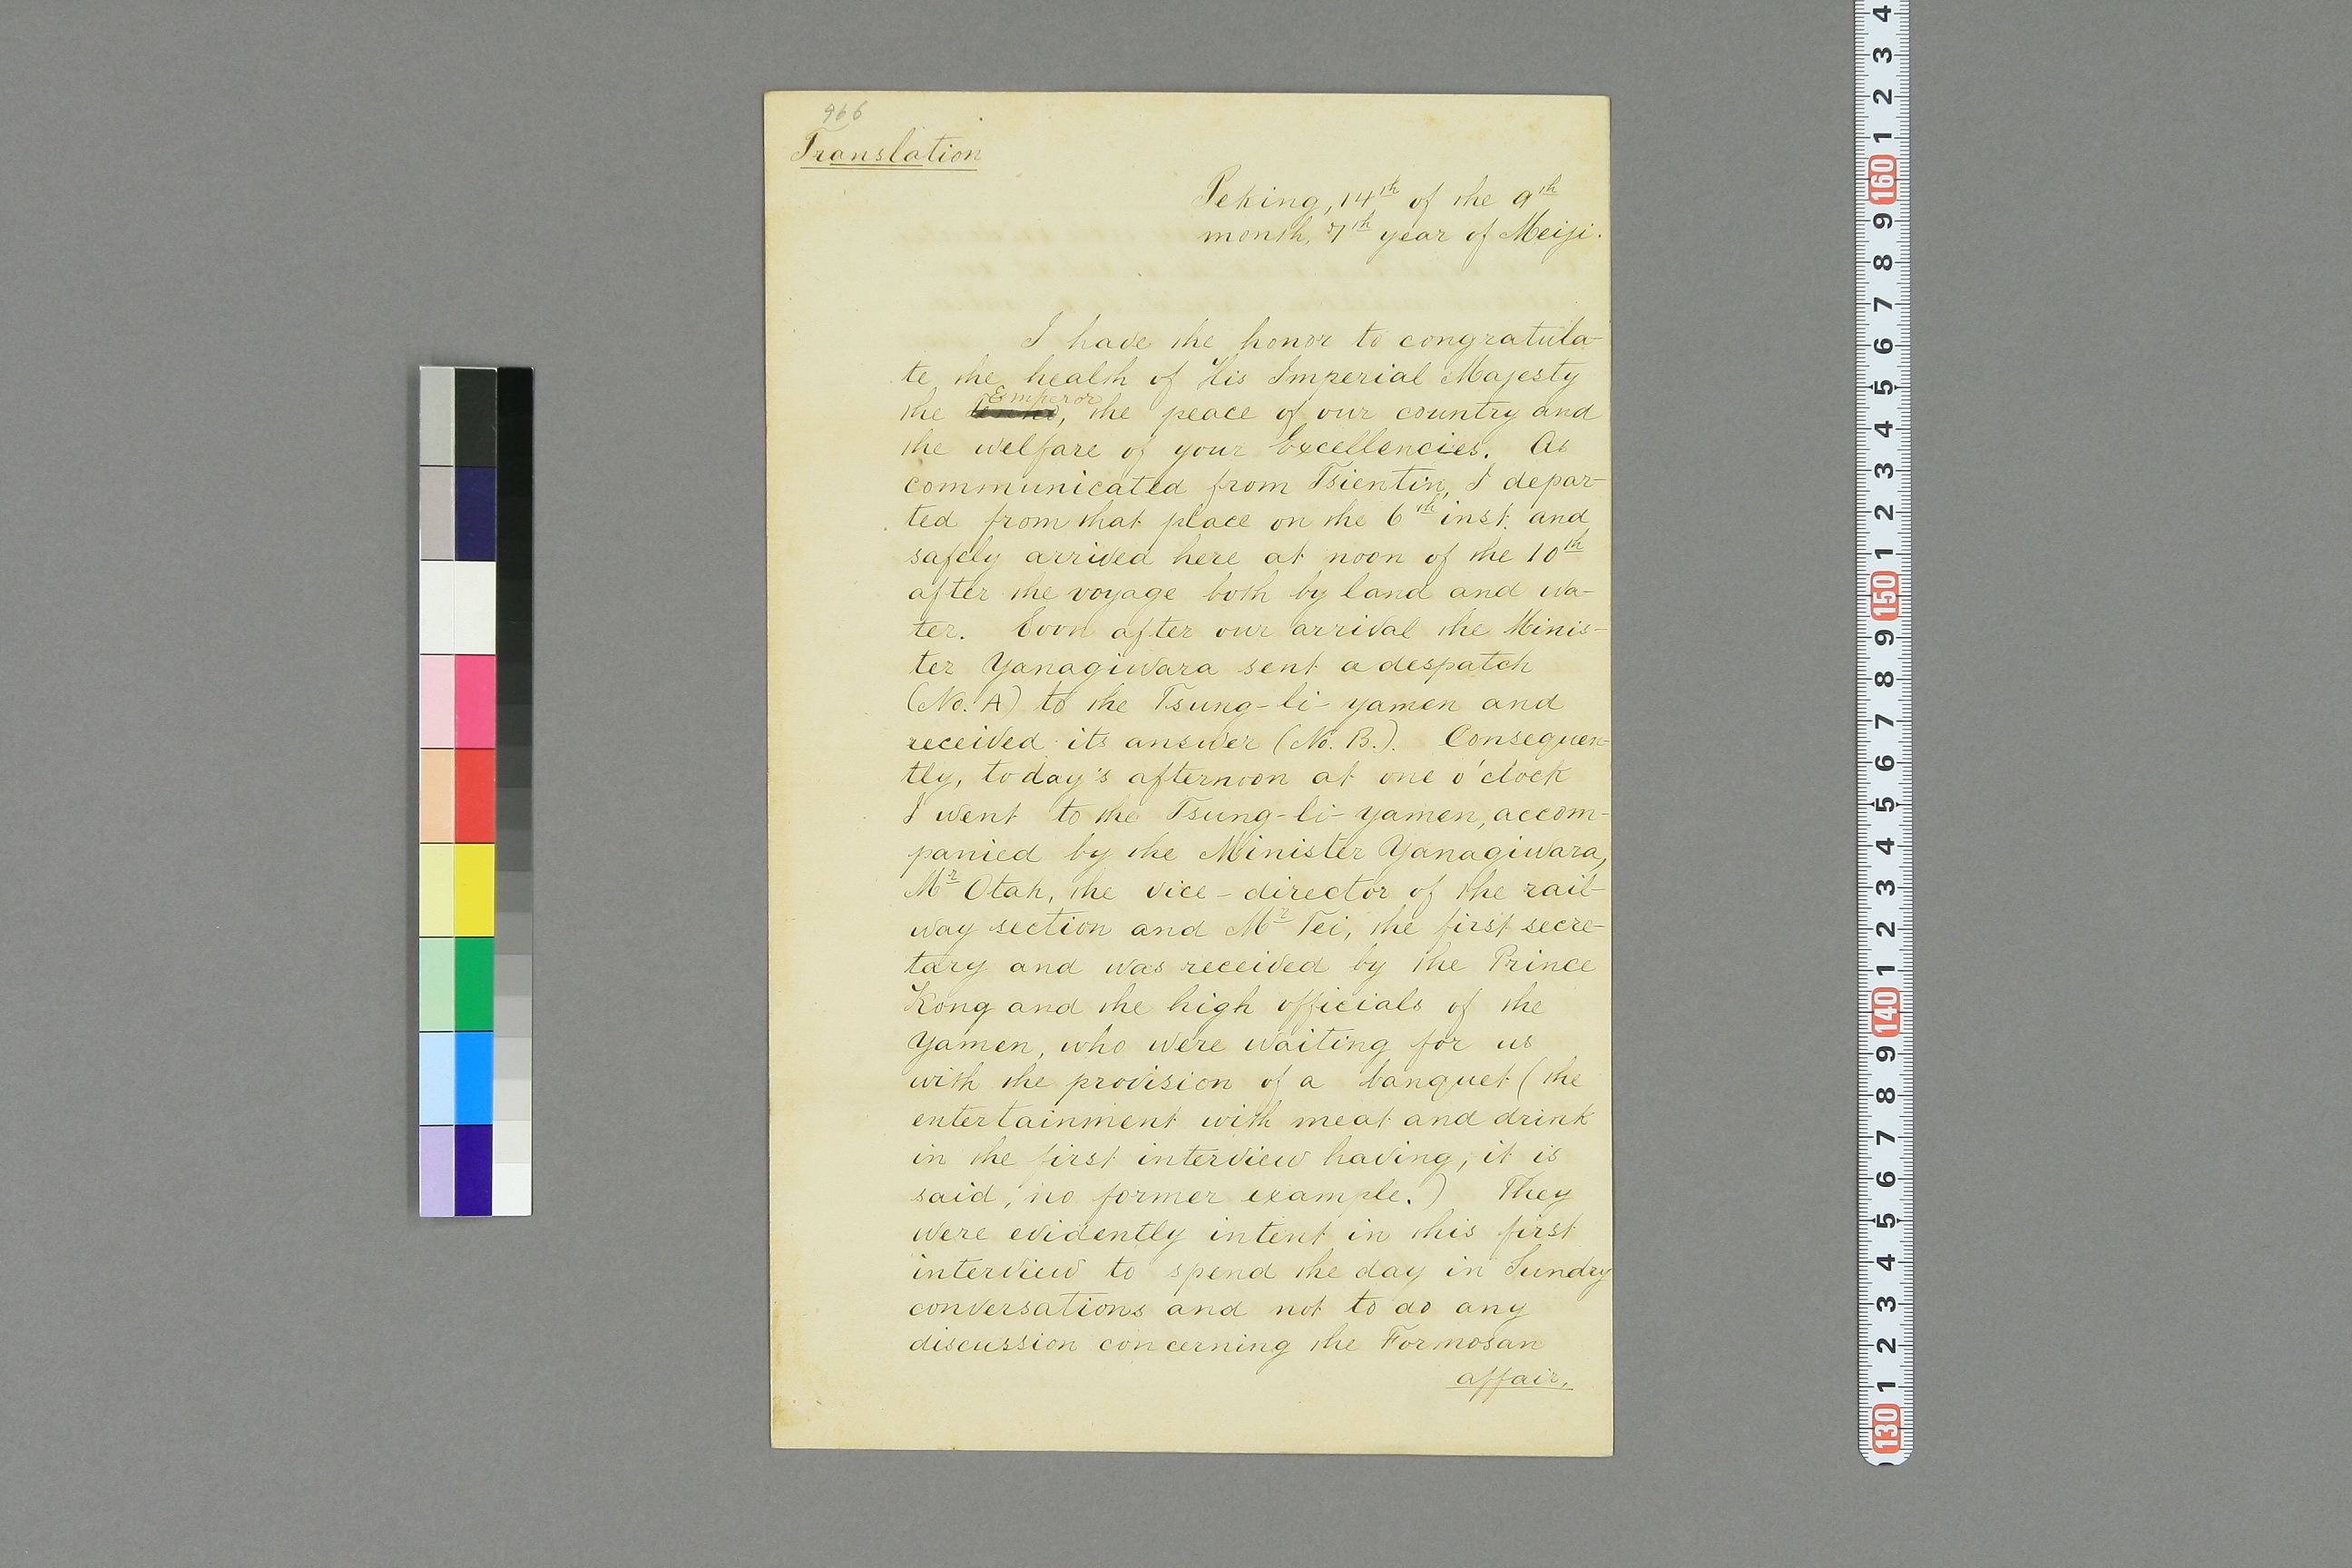 966
Translation
Peking, 14th of the 9th
month, 7th year of Meiji.
I have the honor to congratula-
te the health of His Imperial Majesty
Emperor
the tenno, the peace of our country and
the welfare of your Excellencies. As
communicated from Tsientin, I depar-
ted from that place on the 6th inst. and
safely arrived here at noon of the 10th
after the voyage both by land and wa-
ter. Soon after our arrival the Minis-
ter Yanagiwara sent a despatch
(No. A) to the Tsung-li-yamen and
received its answer (No. B.). Consequen-
tly, today's afternoon at one o'clock
I went to the Tsung-li-yamen, accom-
panied by the Minister Yanagiwara,
Mr Otah, the vice-director of the rail-
way section and Mr Tei, the first secre-
tary and was received by the Prince
Kong and the high officials of the
Yamen, who were waiting for us
with the provision of a banquet (the
entertainment with meat and drink
in the first interview having, it is
said, no former example.) They
were evidently intent in this first
interview to spend the day in Sundry
conversations and not to do any
discussion concerning the Formosan
affair.
4
3
2
1
160
9
8
7
6
5
4
3
2
1
150
9
8
7
6
5
4
3
2
1
140
9
8
7
6
5
4
3
2
1
130